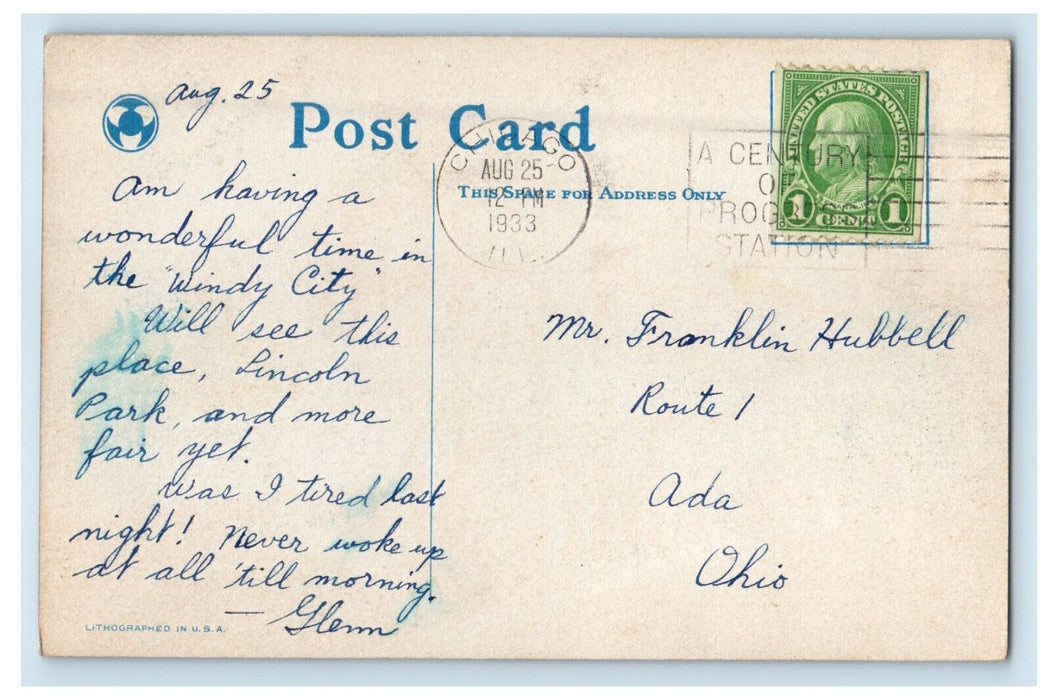 Aug. 25
Post Card
THIS SPACE FOR ADDRESS ONLY
CHICAGO
AUG 25
12 PM
1933
ILL.
A CENTURY
OF
PROGRESS
STATION
UNITED STATES POSTAGE
1 CENT 1
Am having a
wonderful time in
the "Windy City"
Will see this
place, Lincoln
Park, and more
fair yet.
Was I tired last
night! Never woke up
at all 'till morning.
— Glenn
Mr. Franklin Hubbell
Route 1
Ada
Ohio
LITHOGRAPHED IN U.S.A.